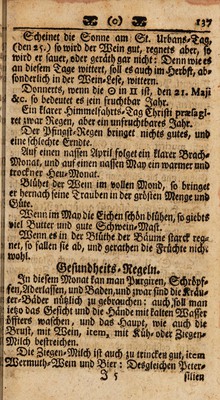 (o) 137
Scheinet die Sonne am St. Urbans-Tag,
(den 25.) so wird der Wein gut, regnets aber, so
wird er sauer, oder geräth gar nicht: Denn wie es
an diesem Tage wittert, soll es auch im Herbst, ab-
sonderlich in der Wein-Lese, wittern.
Donnerts, wenn die ☉ in ♊ ist, den 21. Maji
&c. so bedeutet es sein fruchtbar Jahr.
Ein klarer Himmelfahrts-Tag Christi præsagi-
ret zwar Regen, aber ein unfruchtbares Jahr.
Der Pfingst-Regen bringet nichts gutes, und
eine schlechte Erndte.
Auf einen nassen April folget ein klarer Brach-
Monat, und auf einen nassen May ein warmer und
trockner Heu-Monat.
Blühet der Wein im vollen Mond, so bringet
er hernach seine Trauben in der grösten Menge und
Güte.
Wenn im May die Eichen schön blühen, so giebts
viel Butter und gute Schwein-Mast.
Wenn es in der Blüthe der Bäume starck reg-
net, so fallen sie ab, und gerathen die Früchte nicht
wohl.
Gesundheits-Regeln.
In diesem Monat kan man Purgiren, Schröpf-
fen, Aderlassen, und Baden, und zwar sind die Kräu-
ter-Bäder nützlich zu gebrauchen: auch soll man
itzo das Gesicht und die Hände mit kalten Wasser
öffters waschen, und das Haupt, wie auch die
Brust, mit Wein, item, mit Küh- oder Ziegen-
Milch bestreichen.
Die Ziegen-Milch ist auch zu trincken gut, item
Wermuth-Wein und Bier: Desgleichen Peter-
J 5 silien